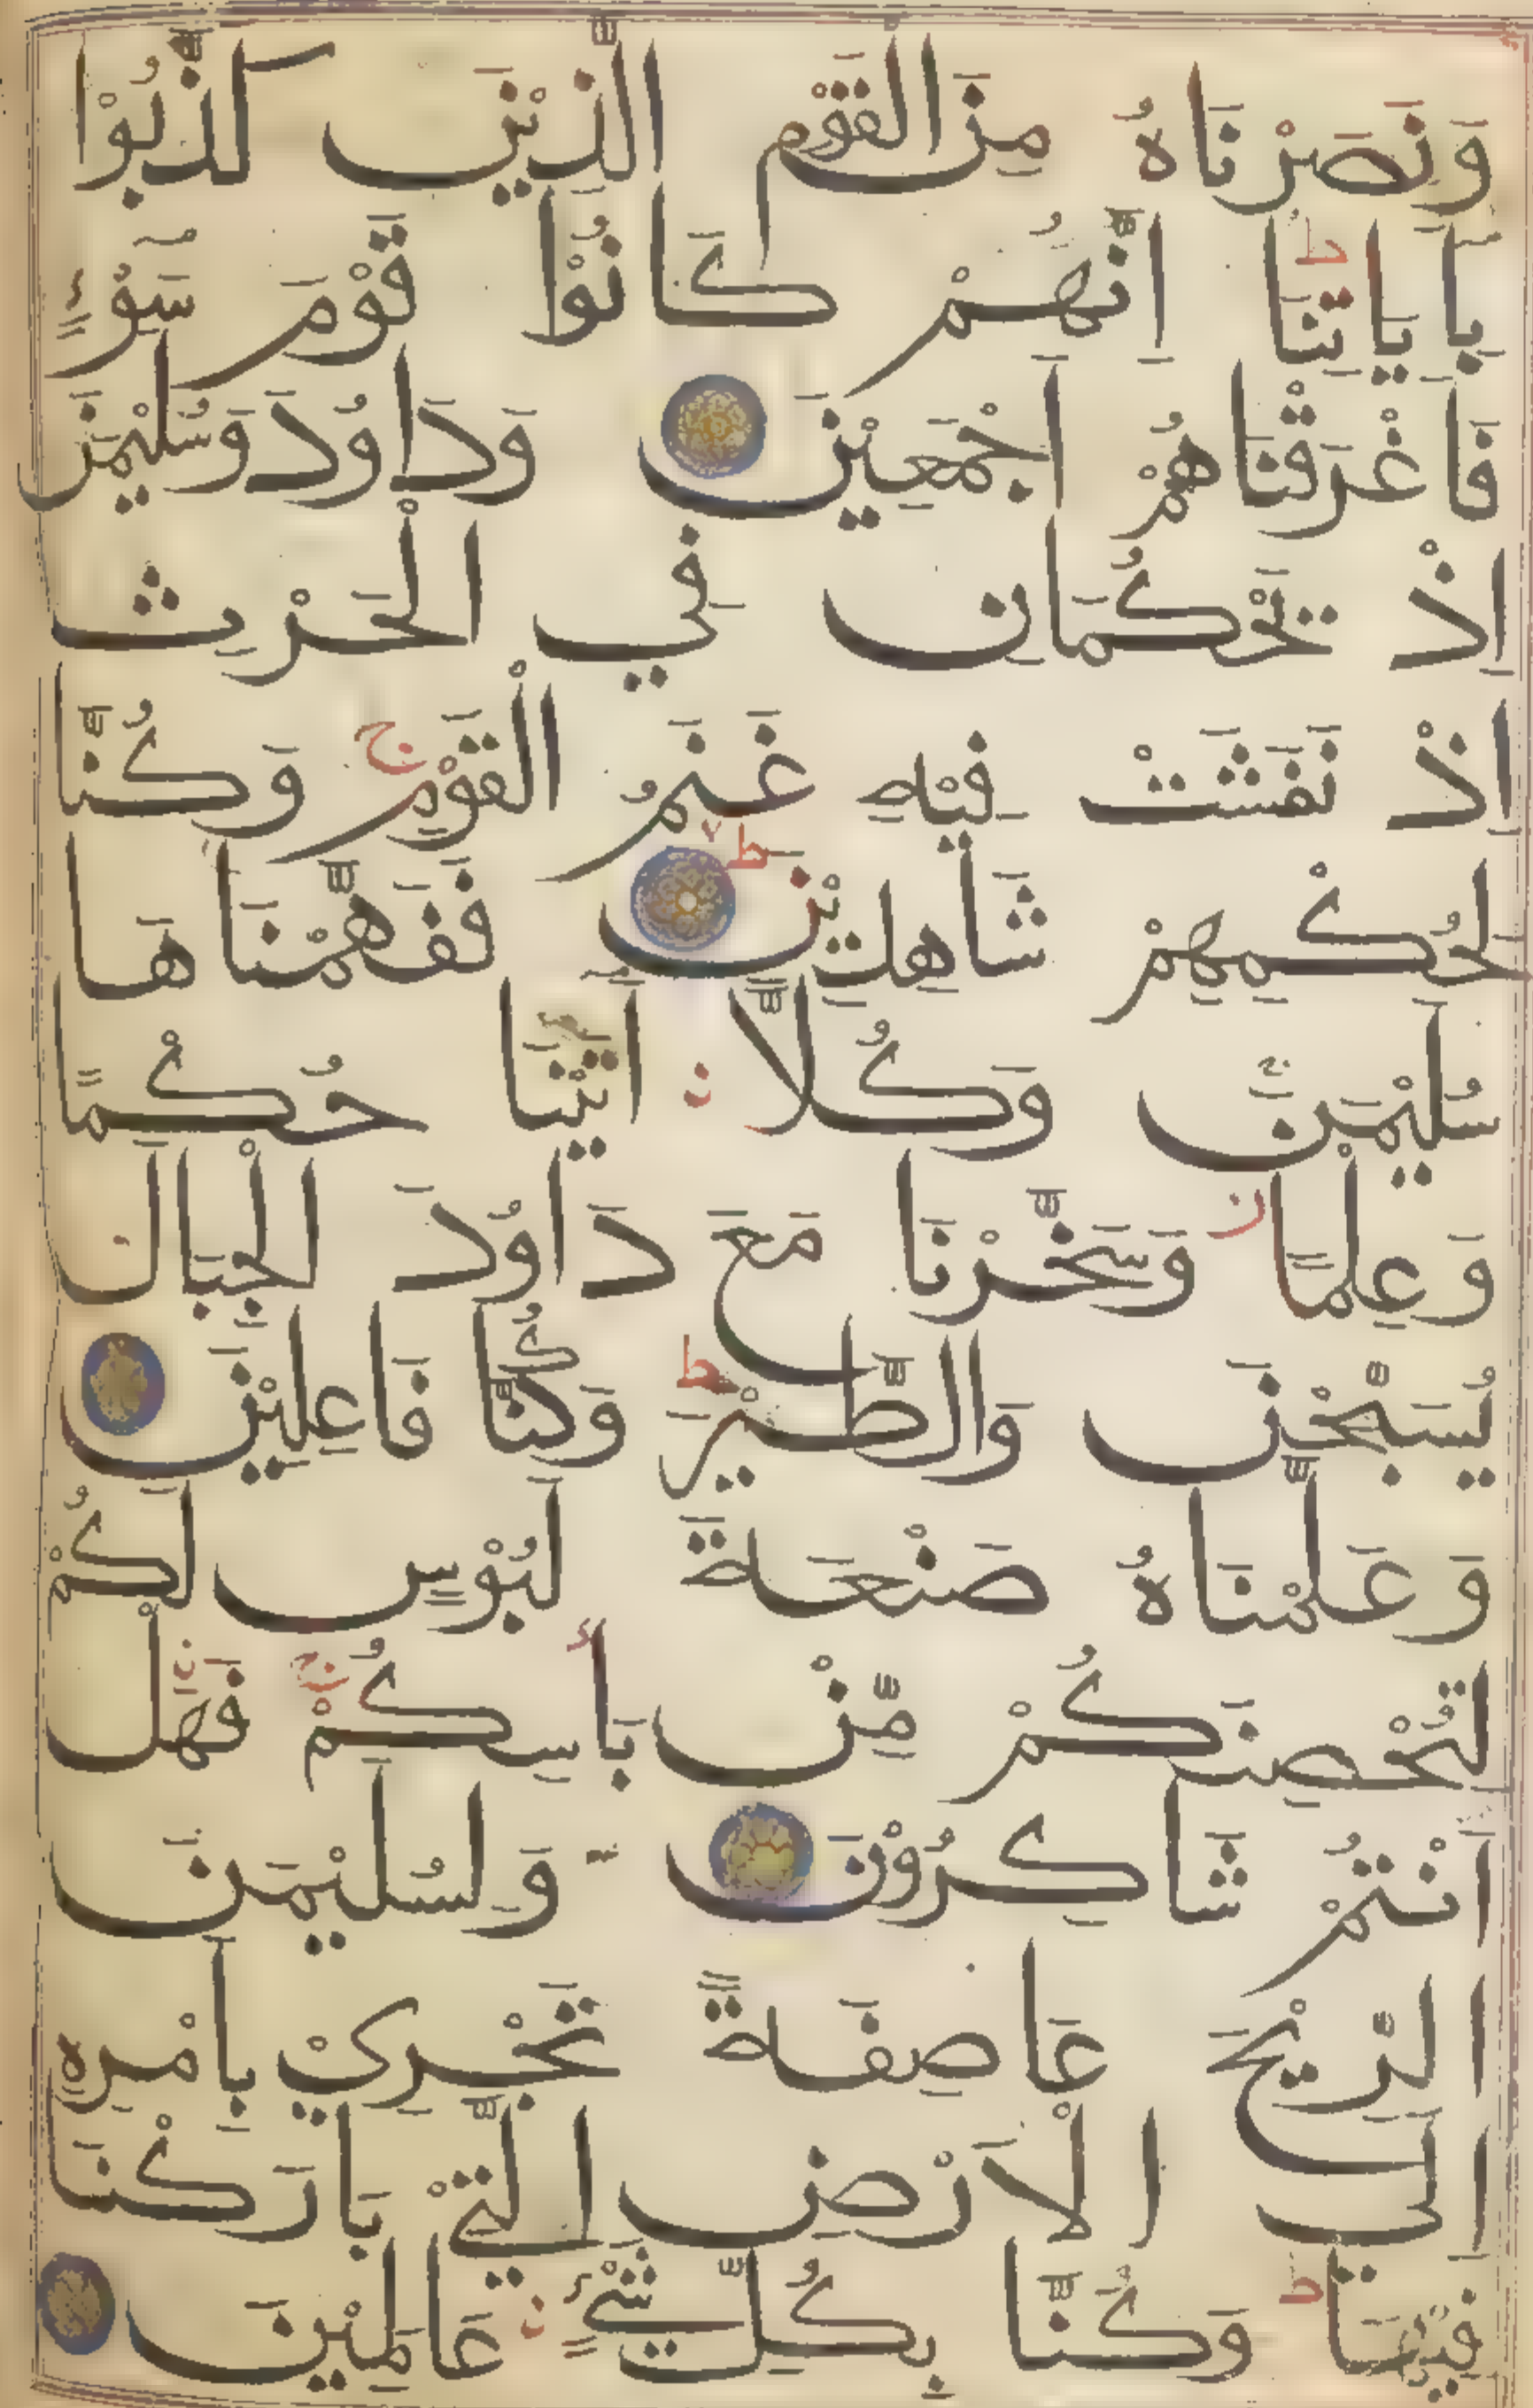 وَنَصَرْنَاهُ مِنَ الْقَوْمِ الَّذِيْنَ كَذَّبُوْا
بِاَيَاتِنَا ط اِنَّهُمْ كَانُوْا قَوْمَ سَوْءٍ
فَاَغْرَقْنَاهُمْ اَجْمَعِيْنَ وَدَاوُدَ وَسُلَيْمٰنَ
اِذْ يَحْكُمَانِ فِي الْحَرْثِ
اِذْ نَفَشَتْ فِيْهِ غَنَمُ الْقَوْمِ ج وَكُنَّا
لِحُكْمِهِمْ شَاهِدِيْنَ ط فَفَهَّمْنَاهَا
سُلَيْمٰنَ وَكُلًّا اٰتَيْنَا حُكْمًا
وَعِلْمًا ن وَسَخَّرْنَا مَعَ دَاوُدَ الْجِبَالَ
يُسَبِّحْنَ وَالطَّيْرَ ط وَكُنَّا فَاعِلِيْنَ
وَعَلَّمْنَاهُ صَنْعَةَ لَبُوْسٍ لَكُمْ
لِتُحْصِنَكُمْ مِّنْ بَأْسِكُمْ ج فَهَلْ
اَنْتُمْ شَاكِرُوْنَ وَلِسُلَيْمٰنَ
الرِّيْحَ عَاصِفَةً تَجْرِيْ بِاَمْرِهِ
اِلَى الْاَرْضِ الَّتِيْ بَارَكْنَا
فِيْهَا ط وَكُنَّا بِكُلِّ شَيْءٍ عَالِمِيْنَ